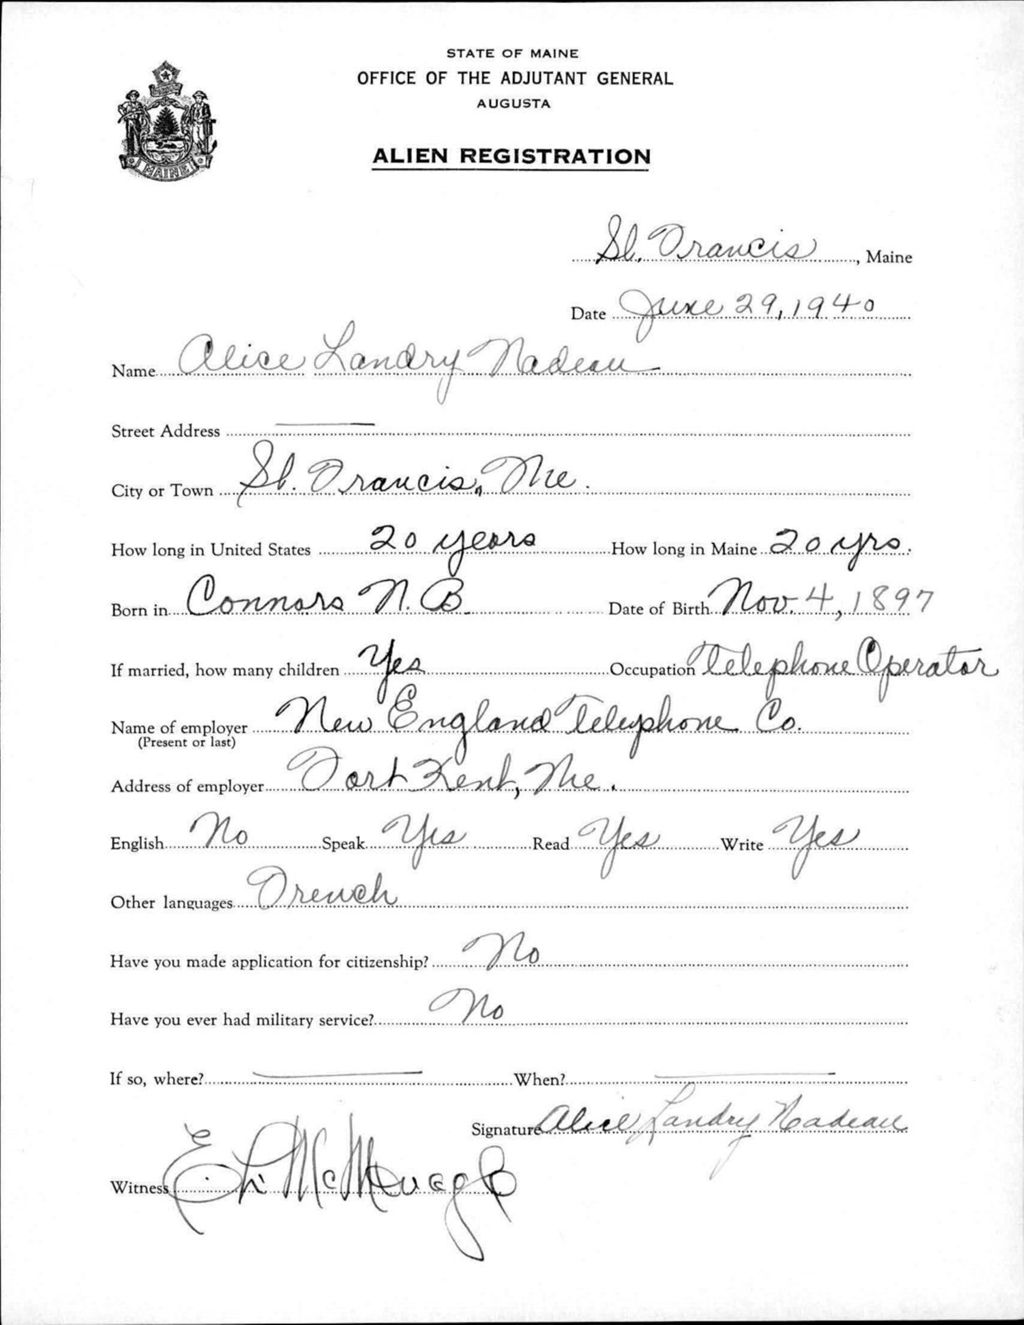 STATE OF MAINE
OFFICE OF THE ADJUTANT GENERAL
AUGUSTA
ALIEN REGISTRATION
MAINE
St. Francis, Maine
Date June 29, 1940
Name Alice Landry Nadeau
Street Address —
City or Town St. Francis, Me.
How long in United States 20 years How long in Maine 20 yrs.
Born in Connors N. B. Date of Birth Nov. 4, 1897
If married, how many children Yes Occupation Telephone Operator
Name of employer New England Telephone Co.
(Present or last)
Address of employer Fort Kent, Me.
English No Speak Yes Read Yes Write Yes
Other languages French
Have you made application for citizenship? No
Have you ever had military service? No
If so, where? — When? —
Signature Alice Landry Nadeau
Witness